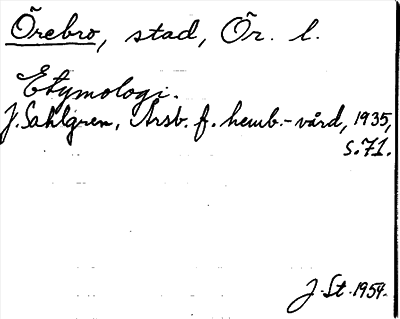 Örebro, stad, Ör. l.
Etymologi.
J. Sahlgren, Årsb. f. hemb.-vård, 1935,
s. 71.
J. St. 1954.